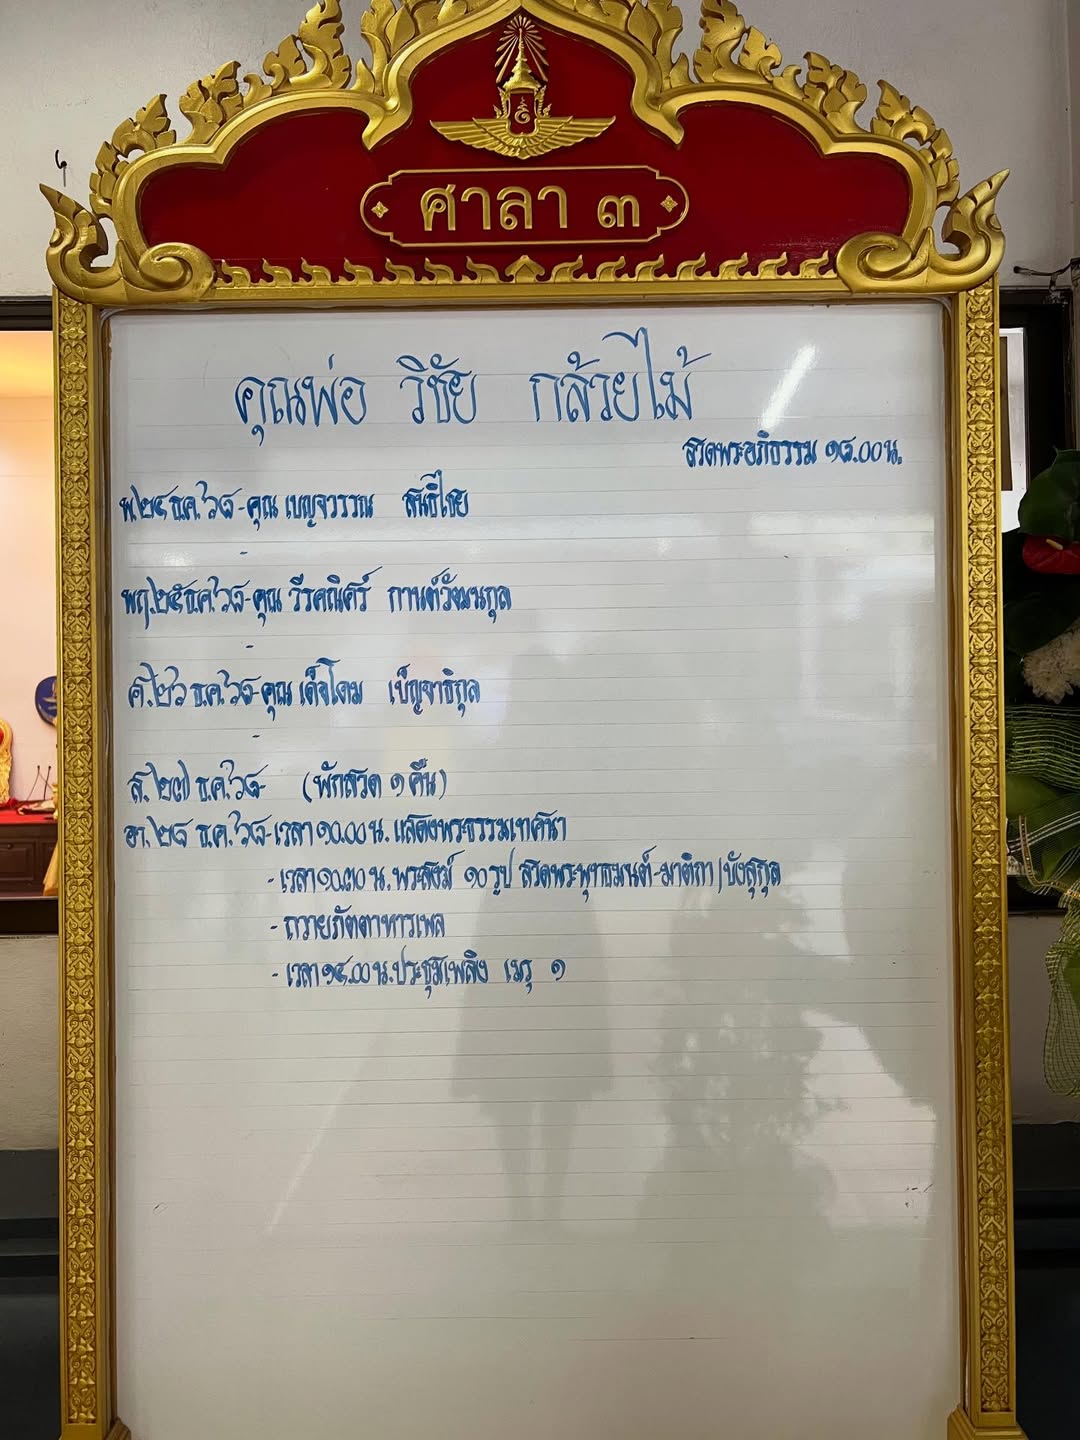 ศาลา ๓
คุณพ่อ วิชัย กล้วยไม้
สวดพระอภิธรรม ๑๘.๐๐ น.
พ.๒๔ ธ.ค.'๖๘ - คุณ เบญจวรรณ สนธิไชย
-
พฤ.๒๕ ธ.ค.'๖๘ - คุณ วีรคณิศร์ กานต์วัฒนกุล
-
ศ.๒๖ ธ.ค.'๖๘ - คุณ เด็จโดม เบ็ญจาธิกุล
-
ส.๒๗ ธ.ค.'๖๘ - (พักสวด ๑ คืน)
อา.๒๘ ธ.ค.'๖๘ - เวลา ๑๐.๐๐ น. แสดงพระธรรมเทศนา
- เวลา ๑๐.๓๐ น. พระสงฆ์ ๑๐ รูป สวดพระพุทธมนต์ - มาติกา / บังสุกุล
- ถวายภัตตาหารเพล
- เวลา ๑๕.๐๐ น. ประชุมเพลิง เมรุ ๑